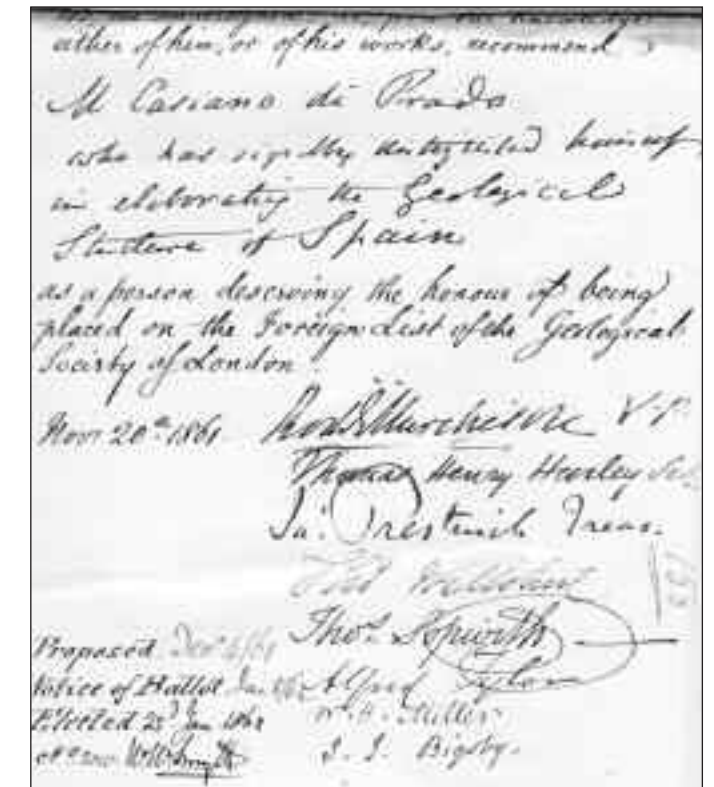 either of him, or of his works, recommend
M Casiano di Prado
who has signally distinguished himself
in elaborating the Geological
Structure of Spain
as a person deserving the honour of being
placed on the Foreign List of the Geological
Society of London.
Novr 20th 1861 Rod I Murchison V.P.
Thomas Henry Huxley Sec
Jos. Prestwich Treas.
Thos. Sopwith
Proposed Decr 4/61
Notice of Ballot Jan. Alfred Tylor
Elected 22d Jan 1862 W. H. Miller
J. J. Bigsby.